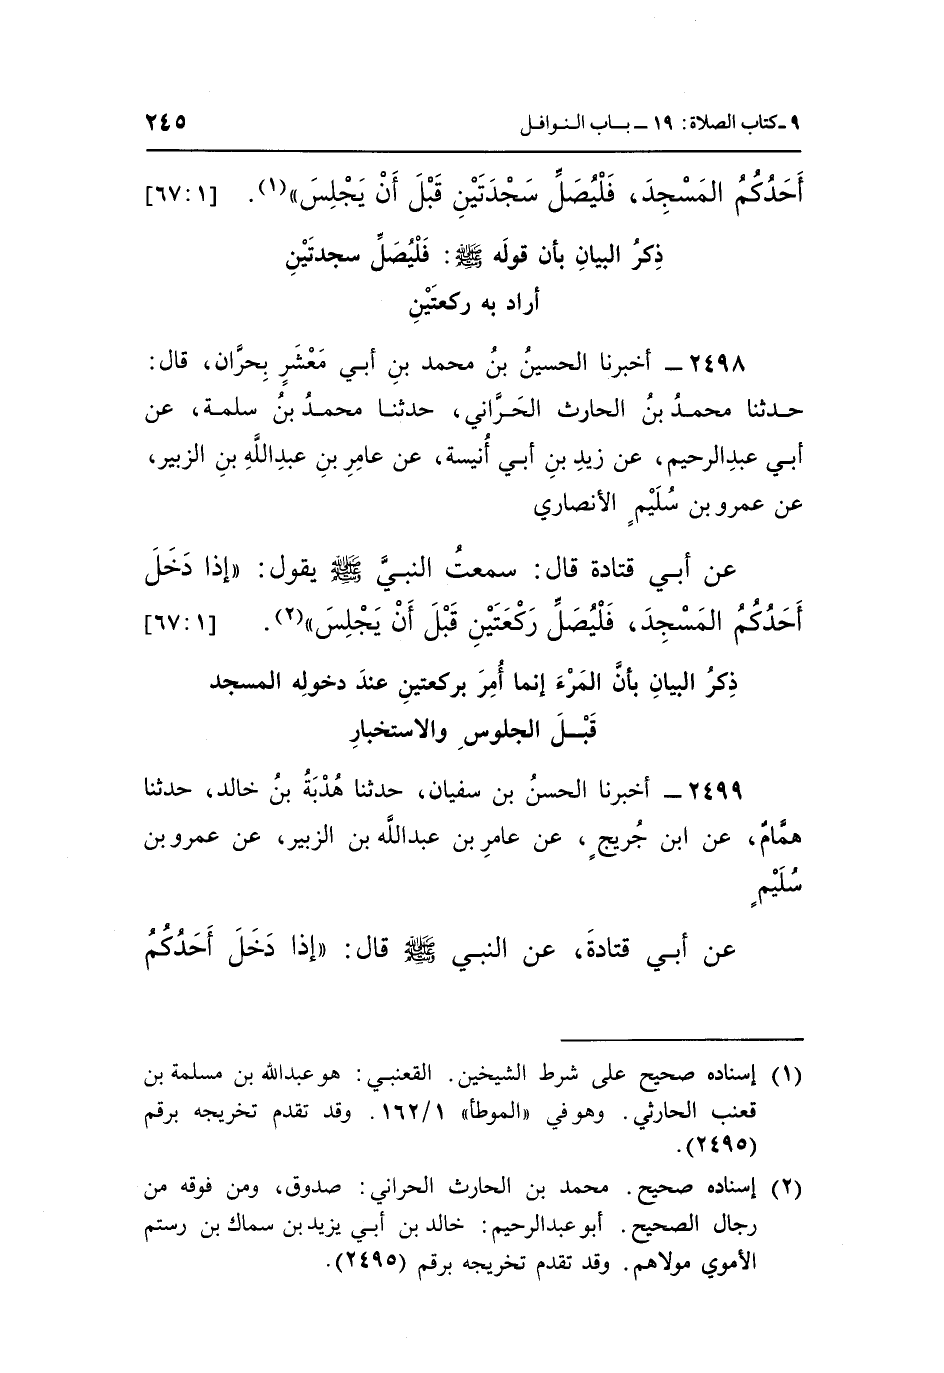 ٩ـ كتاب الصلاة: ١٩ ـ بـاب النـوافـل ٢٤٥
أَحَدُكُمُ المَسْجِدَ، فَلْيُصَلِّ سَجْدَتَيْنِ قَبْلَ أَنْ يَجْلِسَ»(١). [١: ٦٧]
ذِكرُ البيانِ بأن قولَه ﷺ: فَلْيُصَلِّ سجدتَيْنِ
أراد به ركعتَيْنِ
٢٤٩٨ ـ أخبرنا الحسينُ بنُ محمد بنِ أبي مَعْشَرٍ بِحرَّان، قال:
حـدثنا محمـدُ بنُ الحارث الحَرَّاني، حدثنـا محمـدُ بنُ سلمـة، عن
أبـي عبدِالرحيم، عن زيدِ بنِ أبـي أُنيسة، عن عامِرِ بنِ عبدِاللَّهِ بنِ الزبير،
عن عمرو بن سُلَيْمٍ الأنصاري
عن أبـي قتادة قال: سمعتُ النبـيَّ ﷺ يقول: «إذا دَخَلَ
أَحَدُكُمُ المَسْجِدَ، فَلْيُصَلِّ رَكْعَتَيْنِ قَبْلَ أَنْ يَجْلِسَ»(٢). [١: ٦٧]
ذِكرُ البيانِ بأنَّ المَرْءَ إنما أُمِرَ بركعتينِ عندَ دخولِه المسجد
قَبْـلَ الجلوسِ والاستخبارِ
٢٤٩٩ ـ أخبرنا الحسنُ بن سفيان، حدثنا هُدْبَةُ بنُ خالد، حدثنا
همَّامٌ، عن ابن جُريجٍ، عن عامرِ بن عبداللَّه بن الزبير، عن عمرو بن
سُلَيْمٍ
عن أبـي قتادةَ، عن النبـي ﷺ قال: «إذا دَخَلَ أَحَدُكُمُ
(١) إسناده صحيح على شرط الشيخين. القعنبـي: هو عبدالله بن مسلمة بن
قعنب الحارثي. وهو في «الموطأ» ١/١٦٢. وقد تقدم تخريجه برقم
(٢٤٩٥).
(٢) إسناده صحيح. محمد بن الحارث الحراني: صدوق، ومن فوقه من
رجال الصحيح. أبو عبدالرحيم: خالد بن أبـي يزيد بن سماك بن رستم
الأموي مولاهم. وقد تقدم تخريجه برقم (٢٤٩٥).